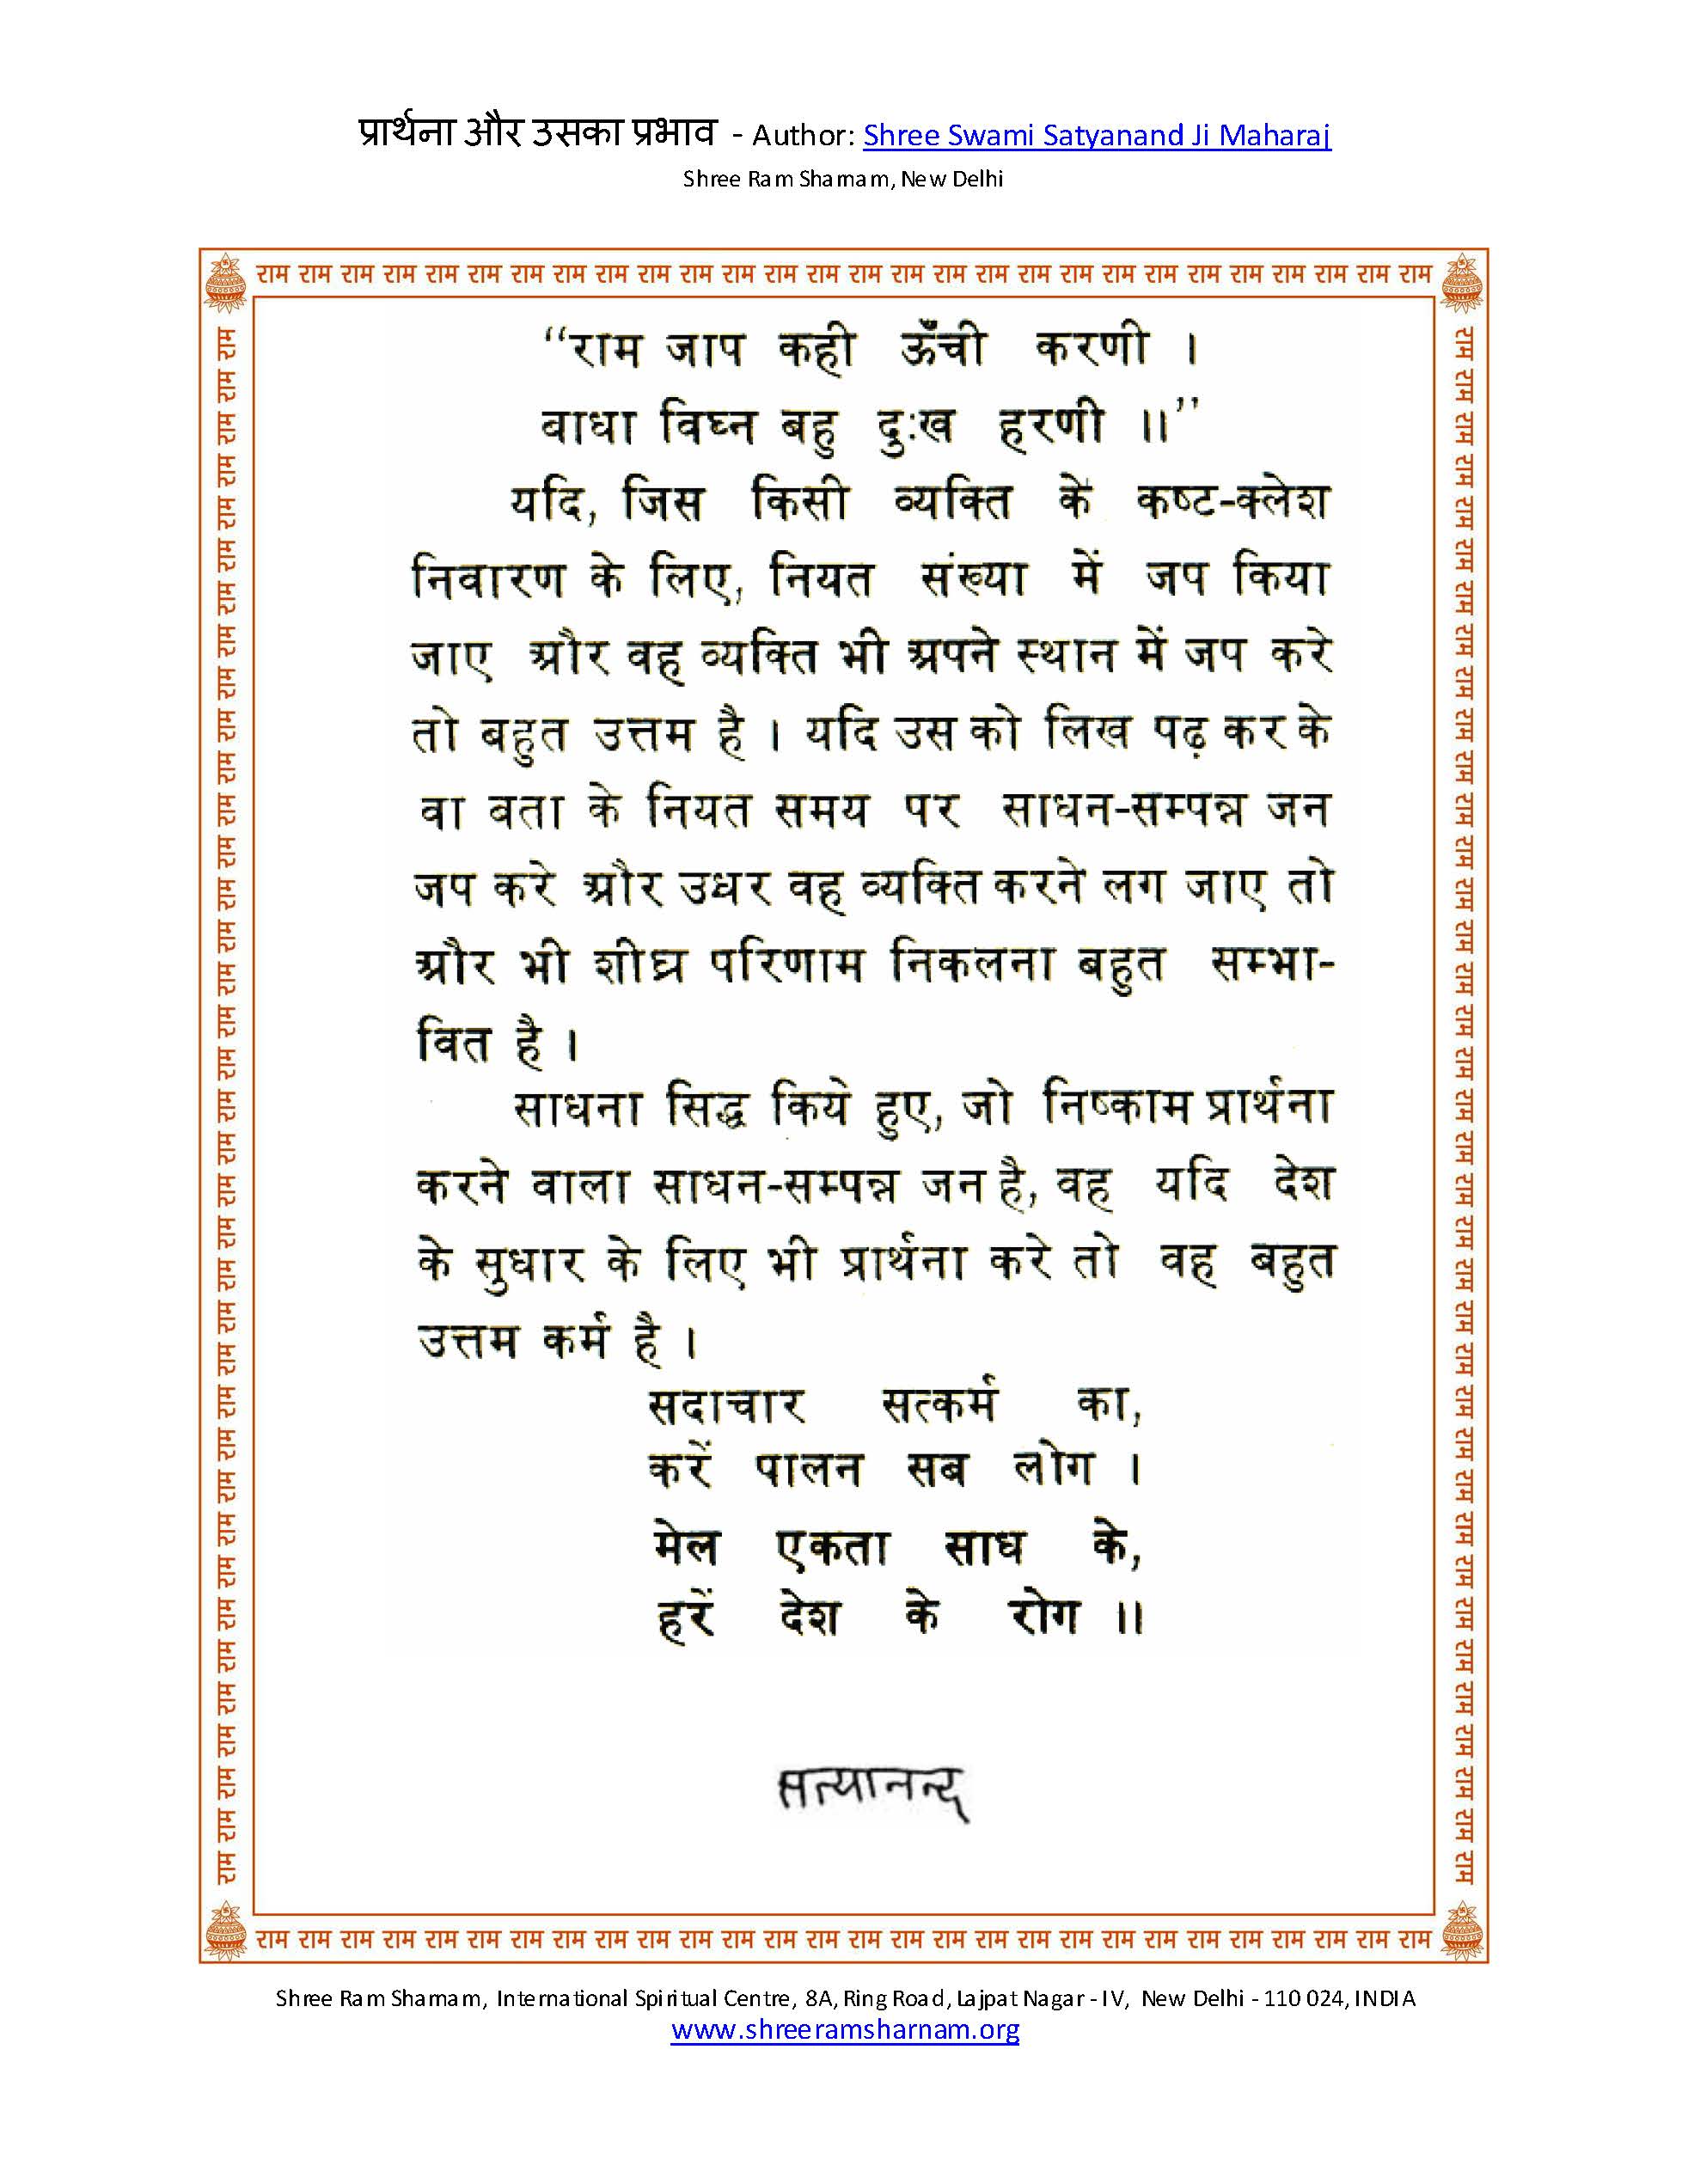 प्रार्थना और उसका प्रभाव - Author: Shree Swami Satyanand Ji Maharaj
Shree Ram Sharnam, New Delhi
राम राम राम राम राम राम राम राम राम राम राम राम राम राम राम राम राम राम राम राम राम राम राम राम राम राम राम राम
“राम जाप कही ऊँची करणी ।
बाधा विघ्न बहु दुःख हरणी ॥”
यदि, जिस किसी व्यक्ति के कष्ट-क्लेश
निवारण के लिए, नियत संख्या में जप किया
जाए और वह व्यक्ति भी अपने स्थान में जप करे
तो बहुत उत्तम है । यदि उस को लिख पढ़ कर के
वा बता के नियत समय पर साधन-सम्पन्न जन
जप करे और उधर वह व्यक्ति करने लग जाए तो
और भी शीघ्र परिणाम निकलना बहुत सम्भा-
वित है ।
साधना सिद्ध किये हुए, जो निष्काम प्रार्थना
करने वाला साधन-सम्पन्न जन है, वह यदि देश
के सुधार के लिए भी प्रार्थना करे तो वह बहुत
उत्तम कर्म है ।
सदाचार सत्कर्म का,
करें पालन सब लोग ।
मेल एकता साध के,
हरें देश के रोग ॥
सत्यानन्द
राम राम राम राम राम राम राम राम राम राम राम राम राम राम राम राम राम राम राम राम राम राम राम राम राम राम राम राम
Shree Ram Sharnam, International Spiritual Centre, 8A, Ring Road, Lajpat Nagar - IV, New Delhi - 110 024, INDIA
www.shreeramsharnam.org